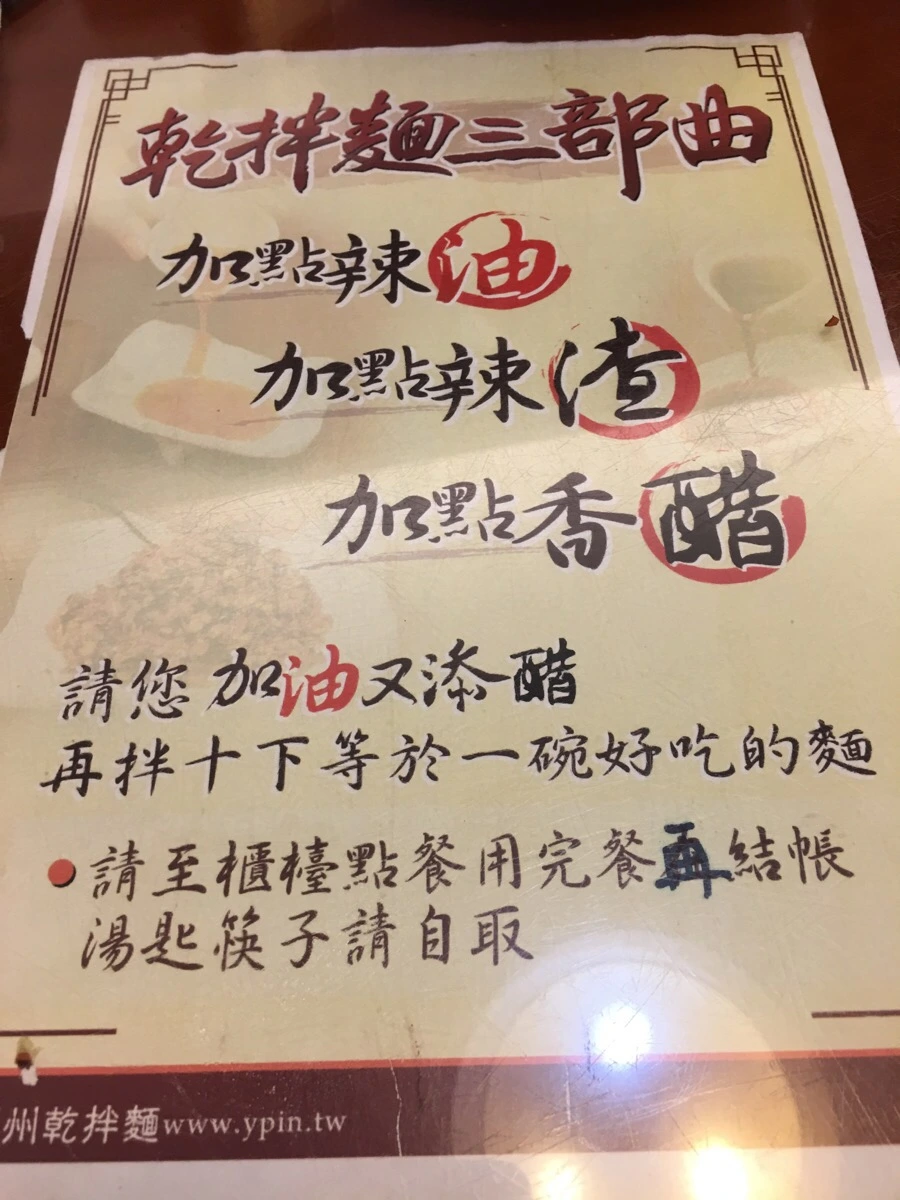 乾拌麵三部曲
加點辣油
加點辣渣
加點香醋
請您 加油又添醋
再拌十下等於一碗好吃的麵
請至櫃檯點餐用完餐再結帳
湯匙筷子請自取
州乾拌麵www.ypin.tw